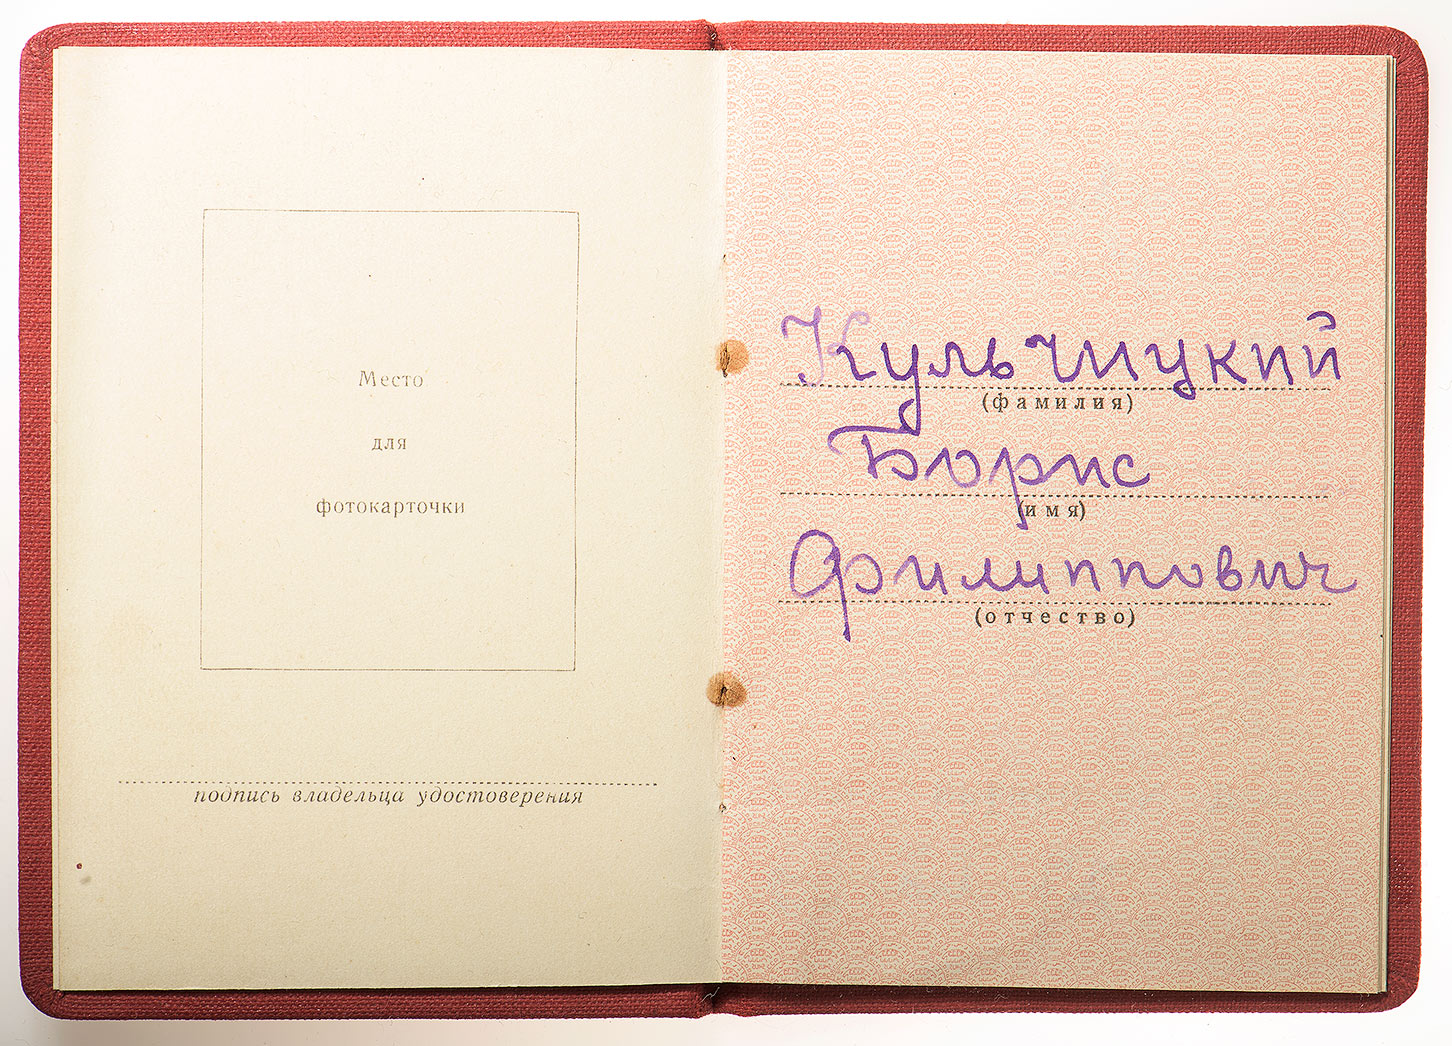 Место
для
фотокарточки
подпись владельца удостоверения
Кульчицкий
(фамилия)
Борис
(имя)
Филиппович
(отчество)